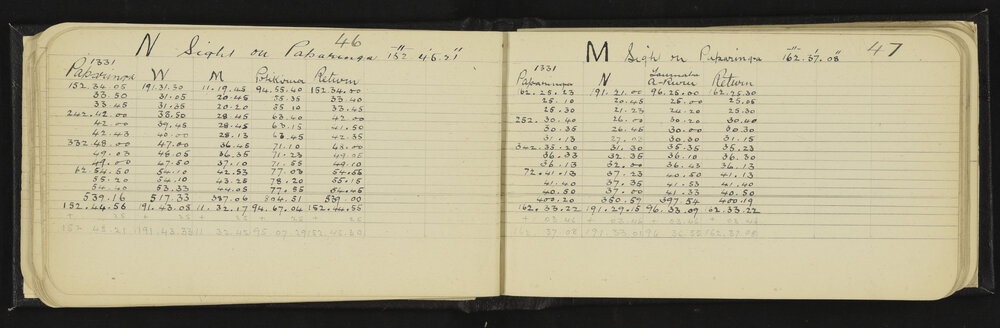 46
N Sight on Paparinga 152 45.21
1331
Paparinga W M Return
152.34.05 191.31.30 11.19.45 94.55.40 152.34.00
33.50 31.05 20.45 55.35 33.40
33.45 31.35 20.20 55.10 33.45
242.42.00 38.50 28.45 63.40 42.00
42.00 39.45 28.45 63.15 41.50
42.43 40.00 28.13 63.45 42.35
332.48.00 47.00 36.45 71.10 48.00
49.03 48.05 36.35 71.23 49.05
49.00 47.50 37.10 71.55 49.10
62.54.50 54.10 42.53 77.03 54.55
55.20 54.10 43.25 78.20 55.15
54.40 53.33 44.05 77.55 54.45
539.16 517.33 387.06 804.51 539.00
152.44.56 191.43.05 11.32.17 94.67.04 152.44.55
+ 25 + 25 + 25 + 25
47
M Sigh on Paparinga 162.37.08
1331
Paparinga N Return
162.25.23 191.21.00 96.25.00 162.25.30
25.10 20.45 25.00 25.05
25.30 21.23 24.20 25.30
252.30.40 26.00 30.20 30.40
30.35 26.45 30.00 30.30
31.13 27.05 30.30 31.15
342.35.20 31.30 35.35 35.23
36.33 32.35 36.10 36.30
36.13 32.00 36.43 36.13
72.41.13 37.23 40.50 41.13
41.40 37.35 41.53 41.40
40.50 37.00 41.33 40.50
400.20 350.59 397.54 400.19
162.33.22 191.29.15 96.33.09 162.33.22
+ 03.46 + 03.46 + 03.46 + 03.46
162 37.08 191.33.01 96 36.55 162.37.08